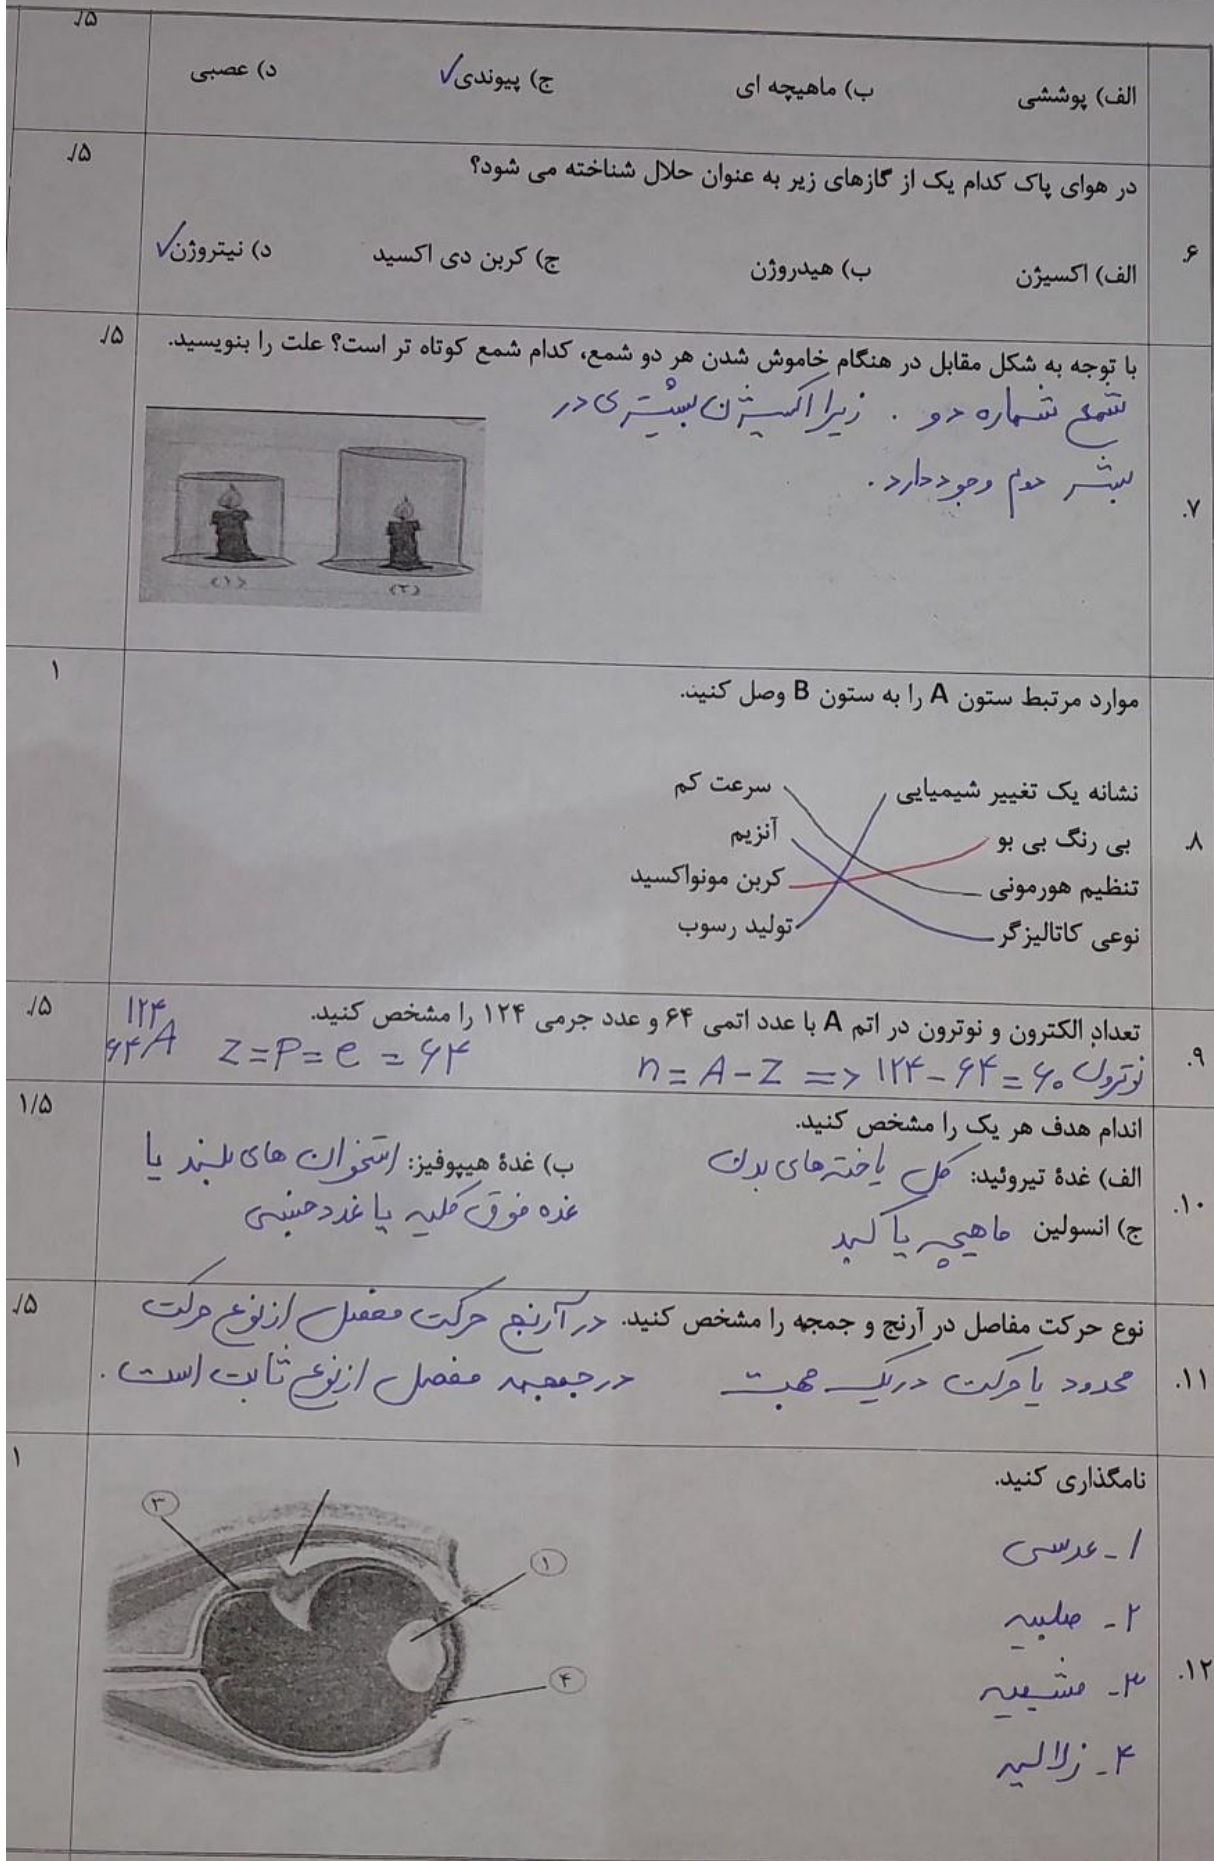 ۵/.
الف) پوششی ب) ماهیچه ای ج) پیوندی✓ د) عصبی
۵/.
در هوای پاک کدام یک از گازهای زیر به عنوان حلال شناخته می شود؟
۶. الف) اکسیژن ب) هیدروژن ج) کربن دی اکسید د) نیتروژن✓
۵/.
با توجه به شکل مقابل در هنگام خاموش شدن هر دو شمع، کدام شمع کوتاه تر است؟ علت را بنویسید.
شمع شماره دو . زیرا اکسیژن بیشتری در
بشر دوم وجود دارد .
۷.
(۱) (۲)
۱
موارد مرتبط ستون A را به ستون B وصل کنید.
نشانه یک تغییر شیمیایی سرعت کم
۸. بی رنگ بی بو آنزیم
تنظیم هورمونی کربن مونواکسید
نوعی کاتالیزگر تولید رسوب
۵/.
۹. تعداد الکترون و نوترون در اتم A با عدد اتمی ۶۴ و عدد جرمی ۱۲۴ را مشخص کنید.
۱۲۴
۶۴A Z=P=e = ۶۴ n = A-Z => ۱۲۴-۶۴=۶۰ نوترون
۱/۵
اندام هدف هر یک را مشخص کنید.
۱۰. الف) غدهٔ تیروئید: کل یاخته های بدن ب) غدهٔ هیپوفیز: استخوان های بلند یا
غده فوق کلیه یا غدد جنسی
ج) انسولین ماهیچه یا کبد
۵/.
۱۱. نوع حرکت مفاصل در آرنج و جمجه را مشخص کنید. در آرنج حرکت مفصل از نوع حرکت
محدود یا حرکت در یک جهت در جمجمه مفصل از نوع ثابت است .
۱
نامگذاری کنید.
۱۲.
۱- عدسی
۲- صلبیه
۳- مشیمیه
۴- زلالیه
۳
۱
۴